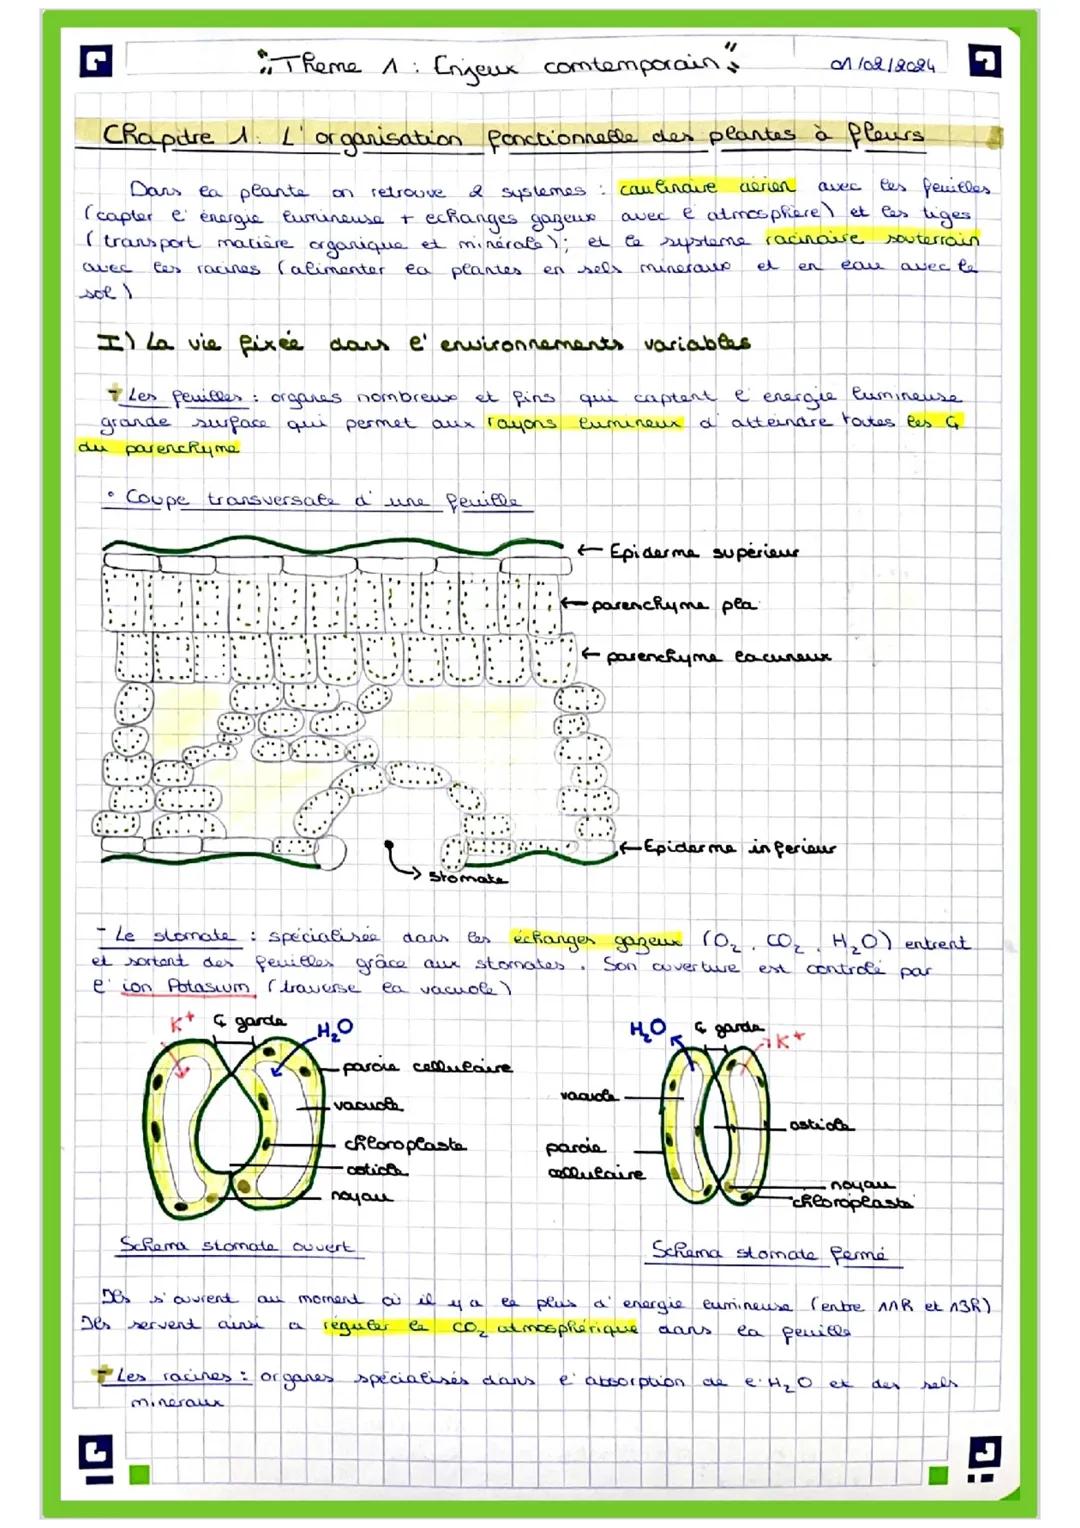 "Theme 1 : Enjeux comtemporain"
01/02/2024
Chapitre 1: L'organisation fonctionnelle des plantes à fleurs
Dans la plante on retrouve 2 systemes : caulinaire aérien avec les feuilles
(capter l'énergie lumineuse + echanges gazeux avec l'atmosphère) et les tiges
(transport matière organique et minérale); et le systeme racinaire souterrain
avec les racines (alimenter la plantes en sels mineraux et en eau avec le
sol)
I) La vie fixée dans l'environnements variables
- Les feuilles : organes nombreux et fins qui captent l'energie lumineuse
grande surface qui permet aux rayons lumineux d'atteindre toutes les C
du parenchyme
• Coupe transversale d'une feuille
← Epiderme supérieur
← parenchyme pla
← parenchyme lacuneux
← Epiderme inferieur
→ stomate
- Le stomate : spécialisée dans les échanges gazeux (O₂, CO₂, H₂O) entrent
et sortent des feuilles grâce aux stomates. Son ouverture est controlé par
l'ion Potasium (traverse la vacuole)
K⁺ C garde H₂O
paroie cellulaire
vacuole
chloroplaste
osticle
noyau
Schema stomate ouvert
H₂O C garde K⁺
vacuole
ostiole
paroie
cellulaire
noyau
chloroplaste
Schema stomate fermé
Ils s'ouvrent au moment où il y a le plus d'energie lumineuse (entre 11h et 13h)
Ils servent ainsi a réguler le CO₂ atmosphérique dans la feuille
- Les racines : organes spécialisés dans l'absorption de l'H₂O et des sels
mineraux